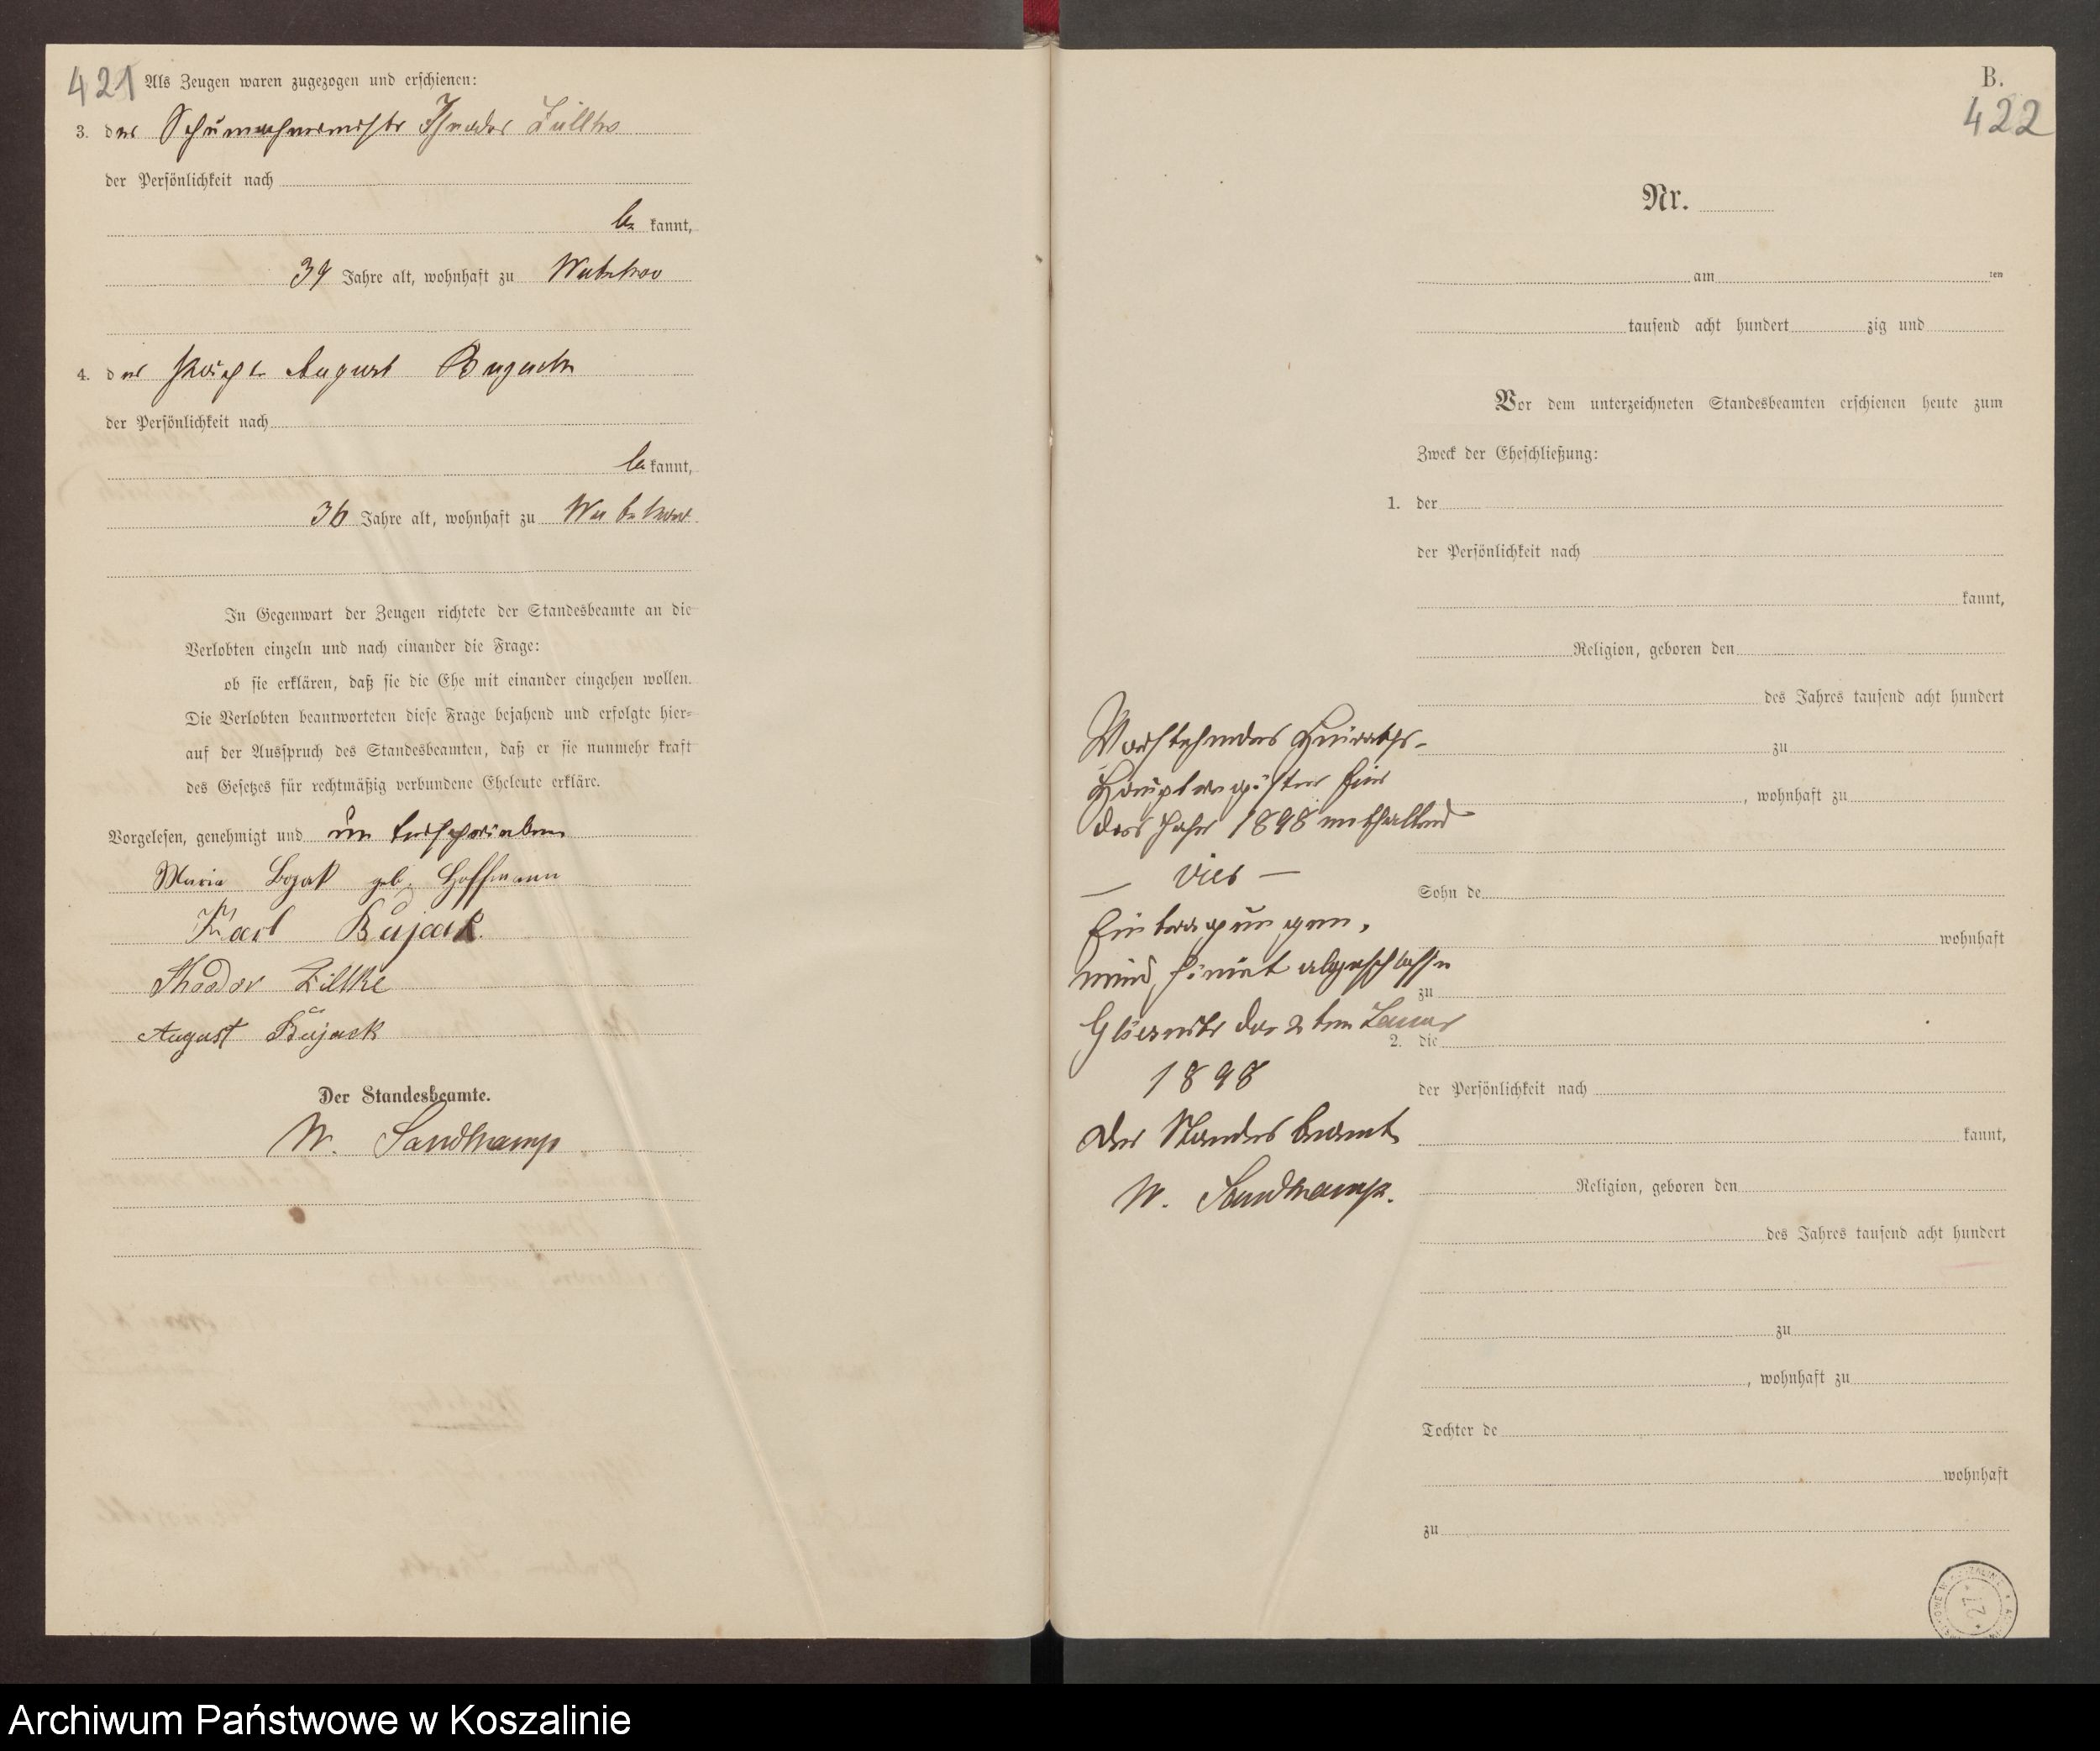 421 Als Zeugen waren zugezogen und erschienen:
3. der Schumachermeister Theodor Züllke
der Persönlichkeit nach
be kannt,
39 Jahre alt, wohnhaft zu
4. der August Bugack
der Persönlichkeit nach
be kannt,
36 Jahre alt, wohnhaft zu
In Gegenwart der Zeugen richtete der Standesbeamte an die
Verlobten einzeln und nach einander die Frage:
ob sie erklären, daß sie die Ehe mit einander eingehen wollen.
Die Verlobten beantworteten diese Frage bejahend und erfolgte hier-
auf der Ausspruch des Standesbeamten, daß er sie nunmehr kraft
des Gesetzes für rechtmäßig verbundene Eheleute erkläre.
Vorgelesen, genehmigt und unterschrieben
Maria Bojak geb. Hoffmann
Karl Bujack
Theodor Zillke
August Bujack
Der Standesbeamte.
W. Sandkamp
B.
422
Nr.
am ten
tausend acht hundert zig und
Vor dem unterzeichneten Standesbeamten erschienen heute zum
Zweck der Eheschließung:
1. der
der Persönlichkeit nach
kannt,
Religion, geboren den
des Jahres tausend acht hundert
zu
, wohnhaft zu
Sohn de
wohnhaft
zu
2. die
der Persönlichkeit nach
kannt,
Religion, geboren den
des Jahres tausend acht hundert
zu
, wohnhaft zu
Tochter de
wohnhaft
zu
Vorstehendes Heiraths-
Hauptregister für
das Jahr 1898 enthaltend
— vier —
Eintragungen,
wird hiermit abgeschlossen
den 2ten Januar
1898
Der Standesbeamte
W. Sandkamp.
27
Archiwum Państwowe w Koszalinie